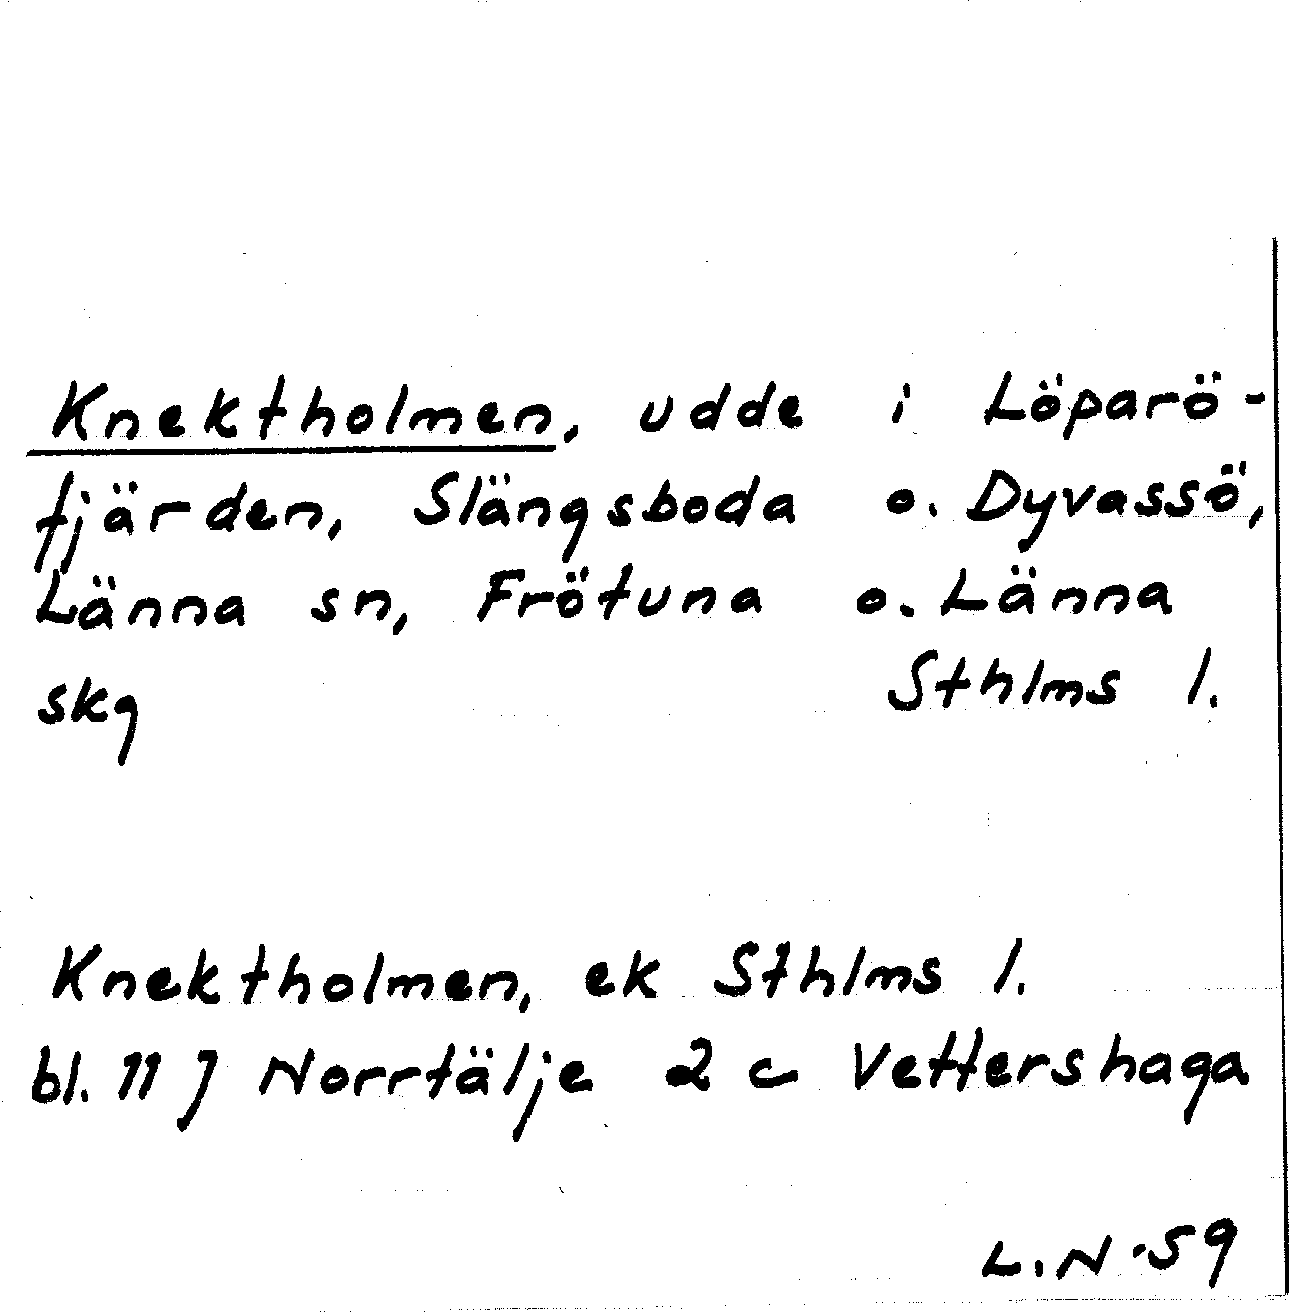 Knektholmen, udde i Löparö-
fjärden, Slängsboda o. Dyvassö,
Länna sn, Frötuna o. Länna
skg Sthlms l.
Knektholmen, ek Sthlms l.
bl. 11 J Norrtälje 2 c Vettershaga
L.N -59